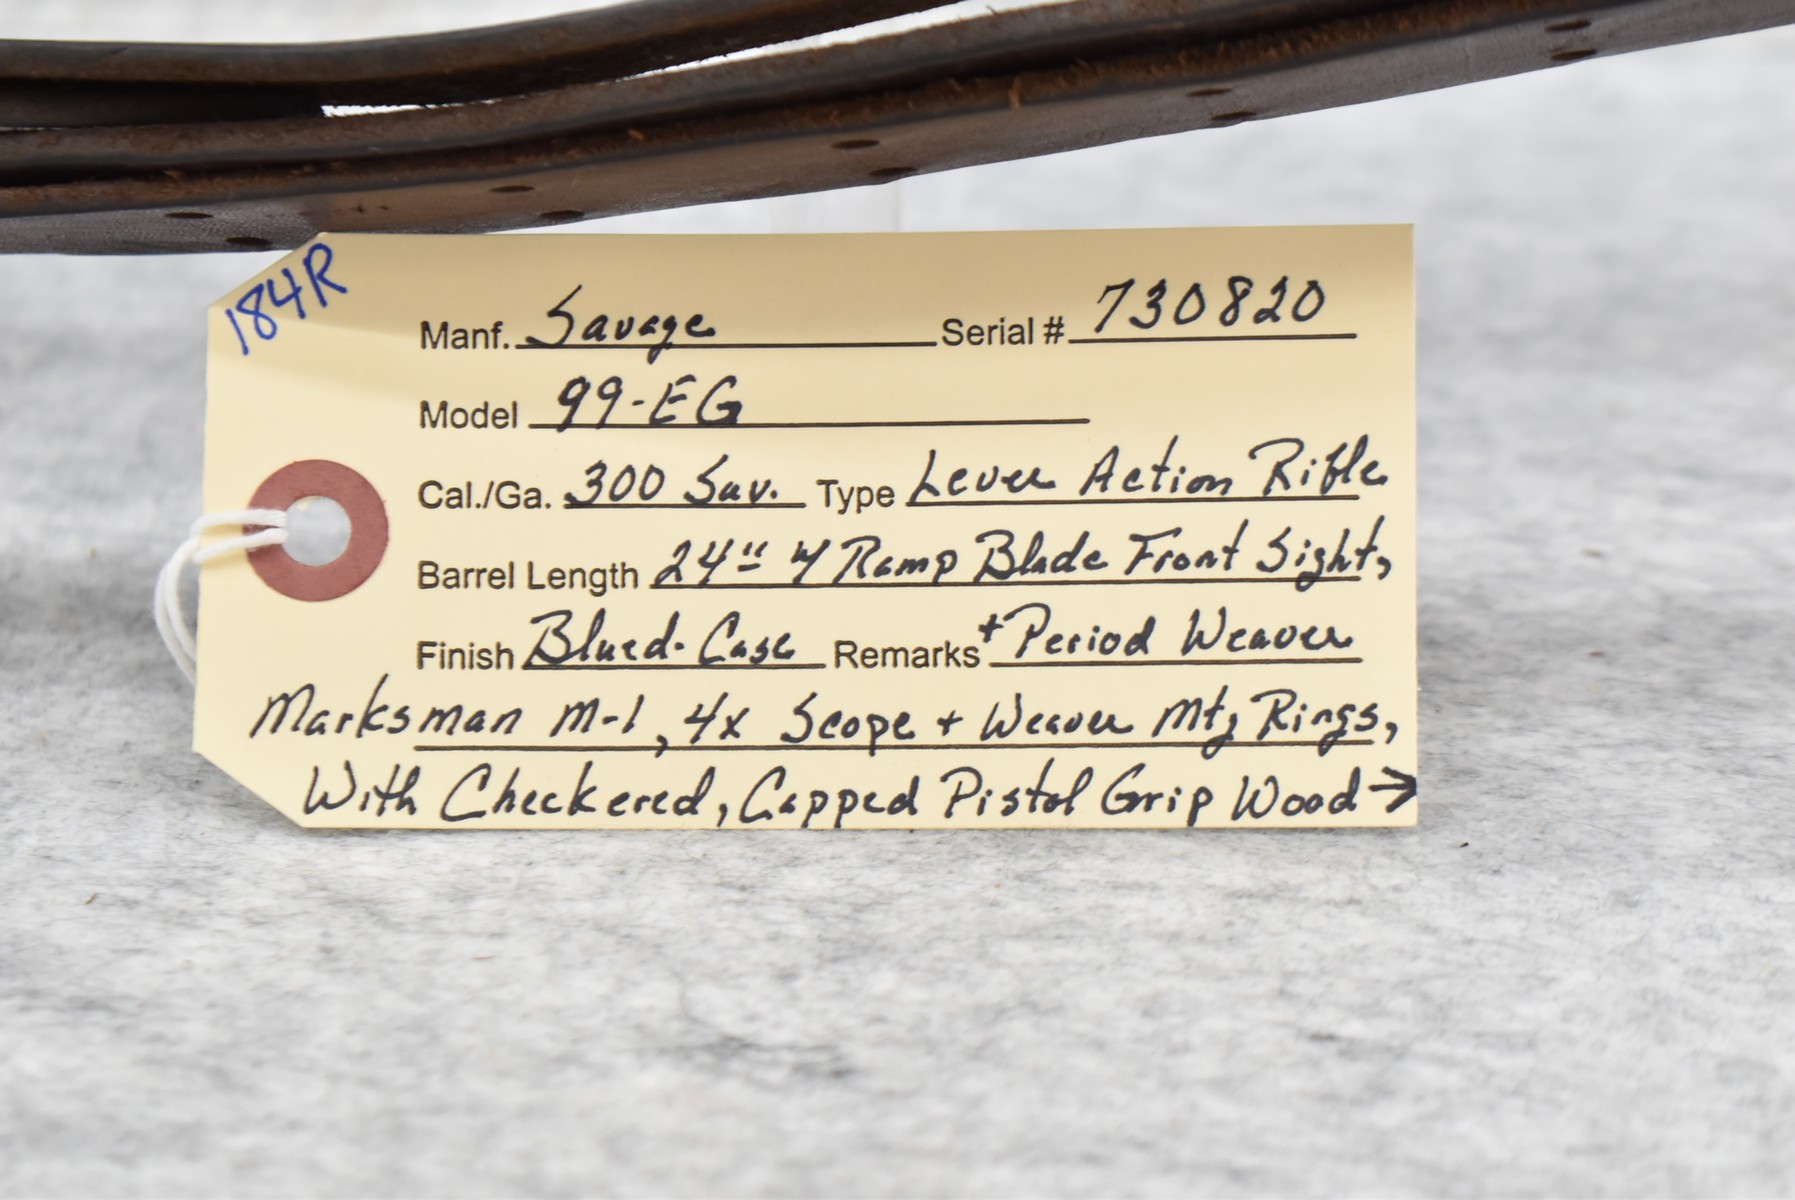 184R
Manf. Savage Serial # 730820
Model 99-EG
Cal./Ga. 300 Sav. Type Lever Action Rifle
Barrel Length 24" w/ Ramp Blade Front Sight,
Finish Blued-Case Remarks + Period Weaver
Marksman M-1, 4x Scope + Weaver Mtg Rings,
With Checkered, Capped Pistol Grip Wood →